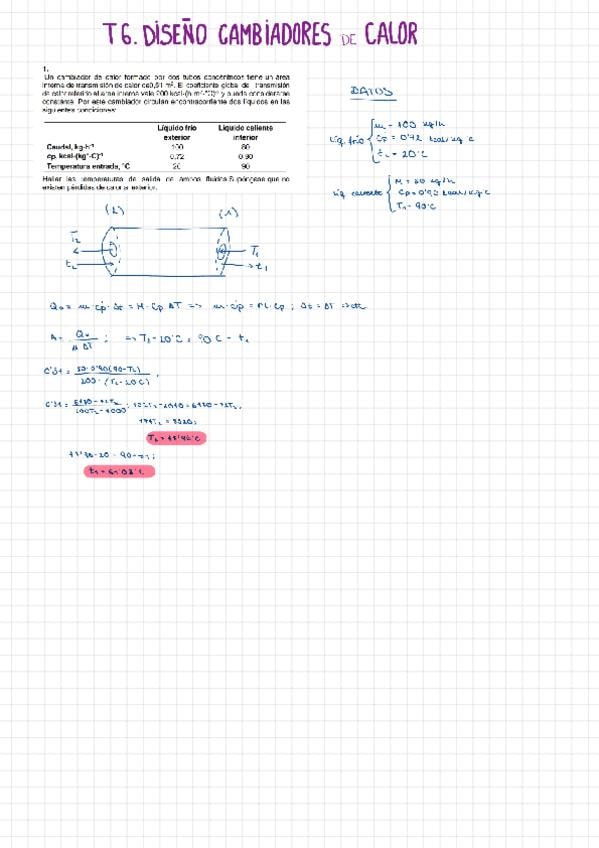 T6. DISEÑO CAMBIADORES DE CALOR
1.
Un cambiador de calor formado por dos tubos concéntricos tiene un área
interna de transmisión de calor de 0,51 m². El coeficiente global de transmisión
de calor referido al área interna vale 200 kcal·(h·m²·ºC)⁻¹ y puede considerarse
constante. Por este cambiador circulan en contracorriente dos líquidos en las
siguientes condiciones:
Líquido frío Líquido caliente
exterior interior
Caudal, kg·h⁻¹ 100 80
cp, kcal·(kg·ºC)⁻¹ 0.72 0.90
Temperatura entrada, ºC 20 90
Hallar las temperaturas de salida de ambos fluidos. Supóngase que no
existen pérdidas de calor al exterior.
DATOS
líq. frío m = 100 kg/h
Cp = 0'72 kcal/kg ºC
t₂ = 20ºC
líq. caliente M = 80 kg/h
Cp = 0'90 kcal/kg ºC
T₁ = 90ºC
(2) (1)
T₂ T₁
t₂ t₁
ΔT =>
A = ; => T₂ - 20ºC = 90ºC - t₁
0'51 = 80·0'90(90-T₂)
200·(T₂-20ºC)
0'51 = 6480-72T₂
200T₂-4000 ; 102T₂-2040 = 6480-72T₂;
174T₂ = 8520;
T₂ = 48'96ºC
48'96-20 = 90-t₁;
t₁ = 61'03ºC